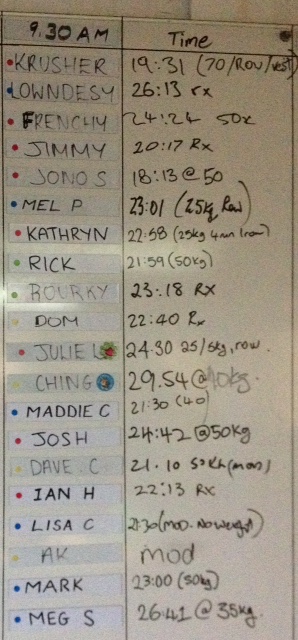 9.30 AM Time
KRUSHER 19:31 (70/ROW/vest)
LOWNDESY 26:13 rx
FRENCHY 24:24 50x
JIMMY 20:17 Rx
JONO S 18:13 @ 50
MEL P 23:01 (25kg Row)
KATHRYN 22:58 (25kg row)
RICK 21:59 (50kg)
BOURKY 23:18 RX
DOM 22:40 Rx
JULIE L 24.30 25/5kg, row.
CHING 29.54 @ 40kg.
MADDIE C 21:30 (40)
JOSH 24:42 @50kg
DAVE C 21.10
IAN H 22:13 Rx
LISA C 21:30 (mod. No weight)
AK mod
MARK 23:00 (50kg)
MEG S 26:41 @ 35kg.